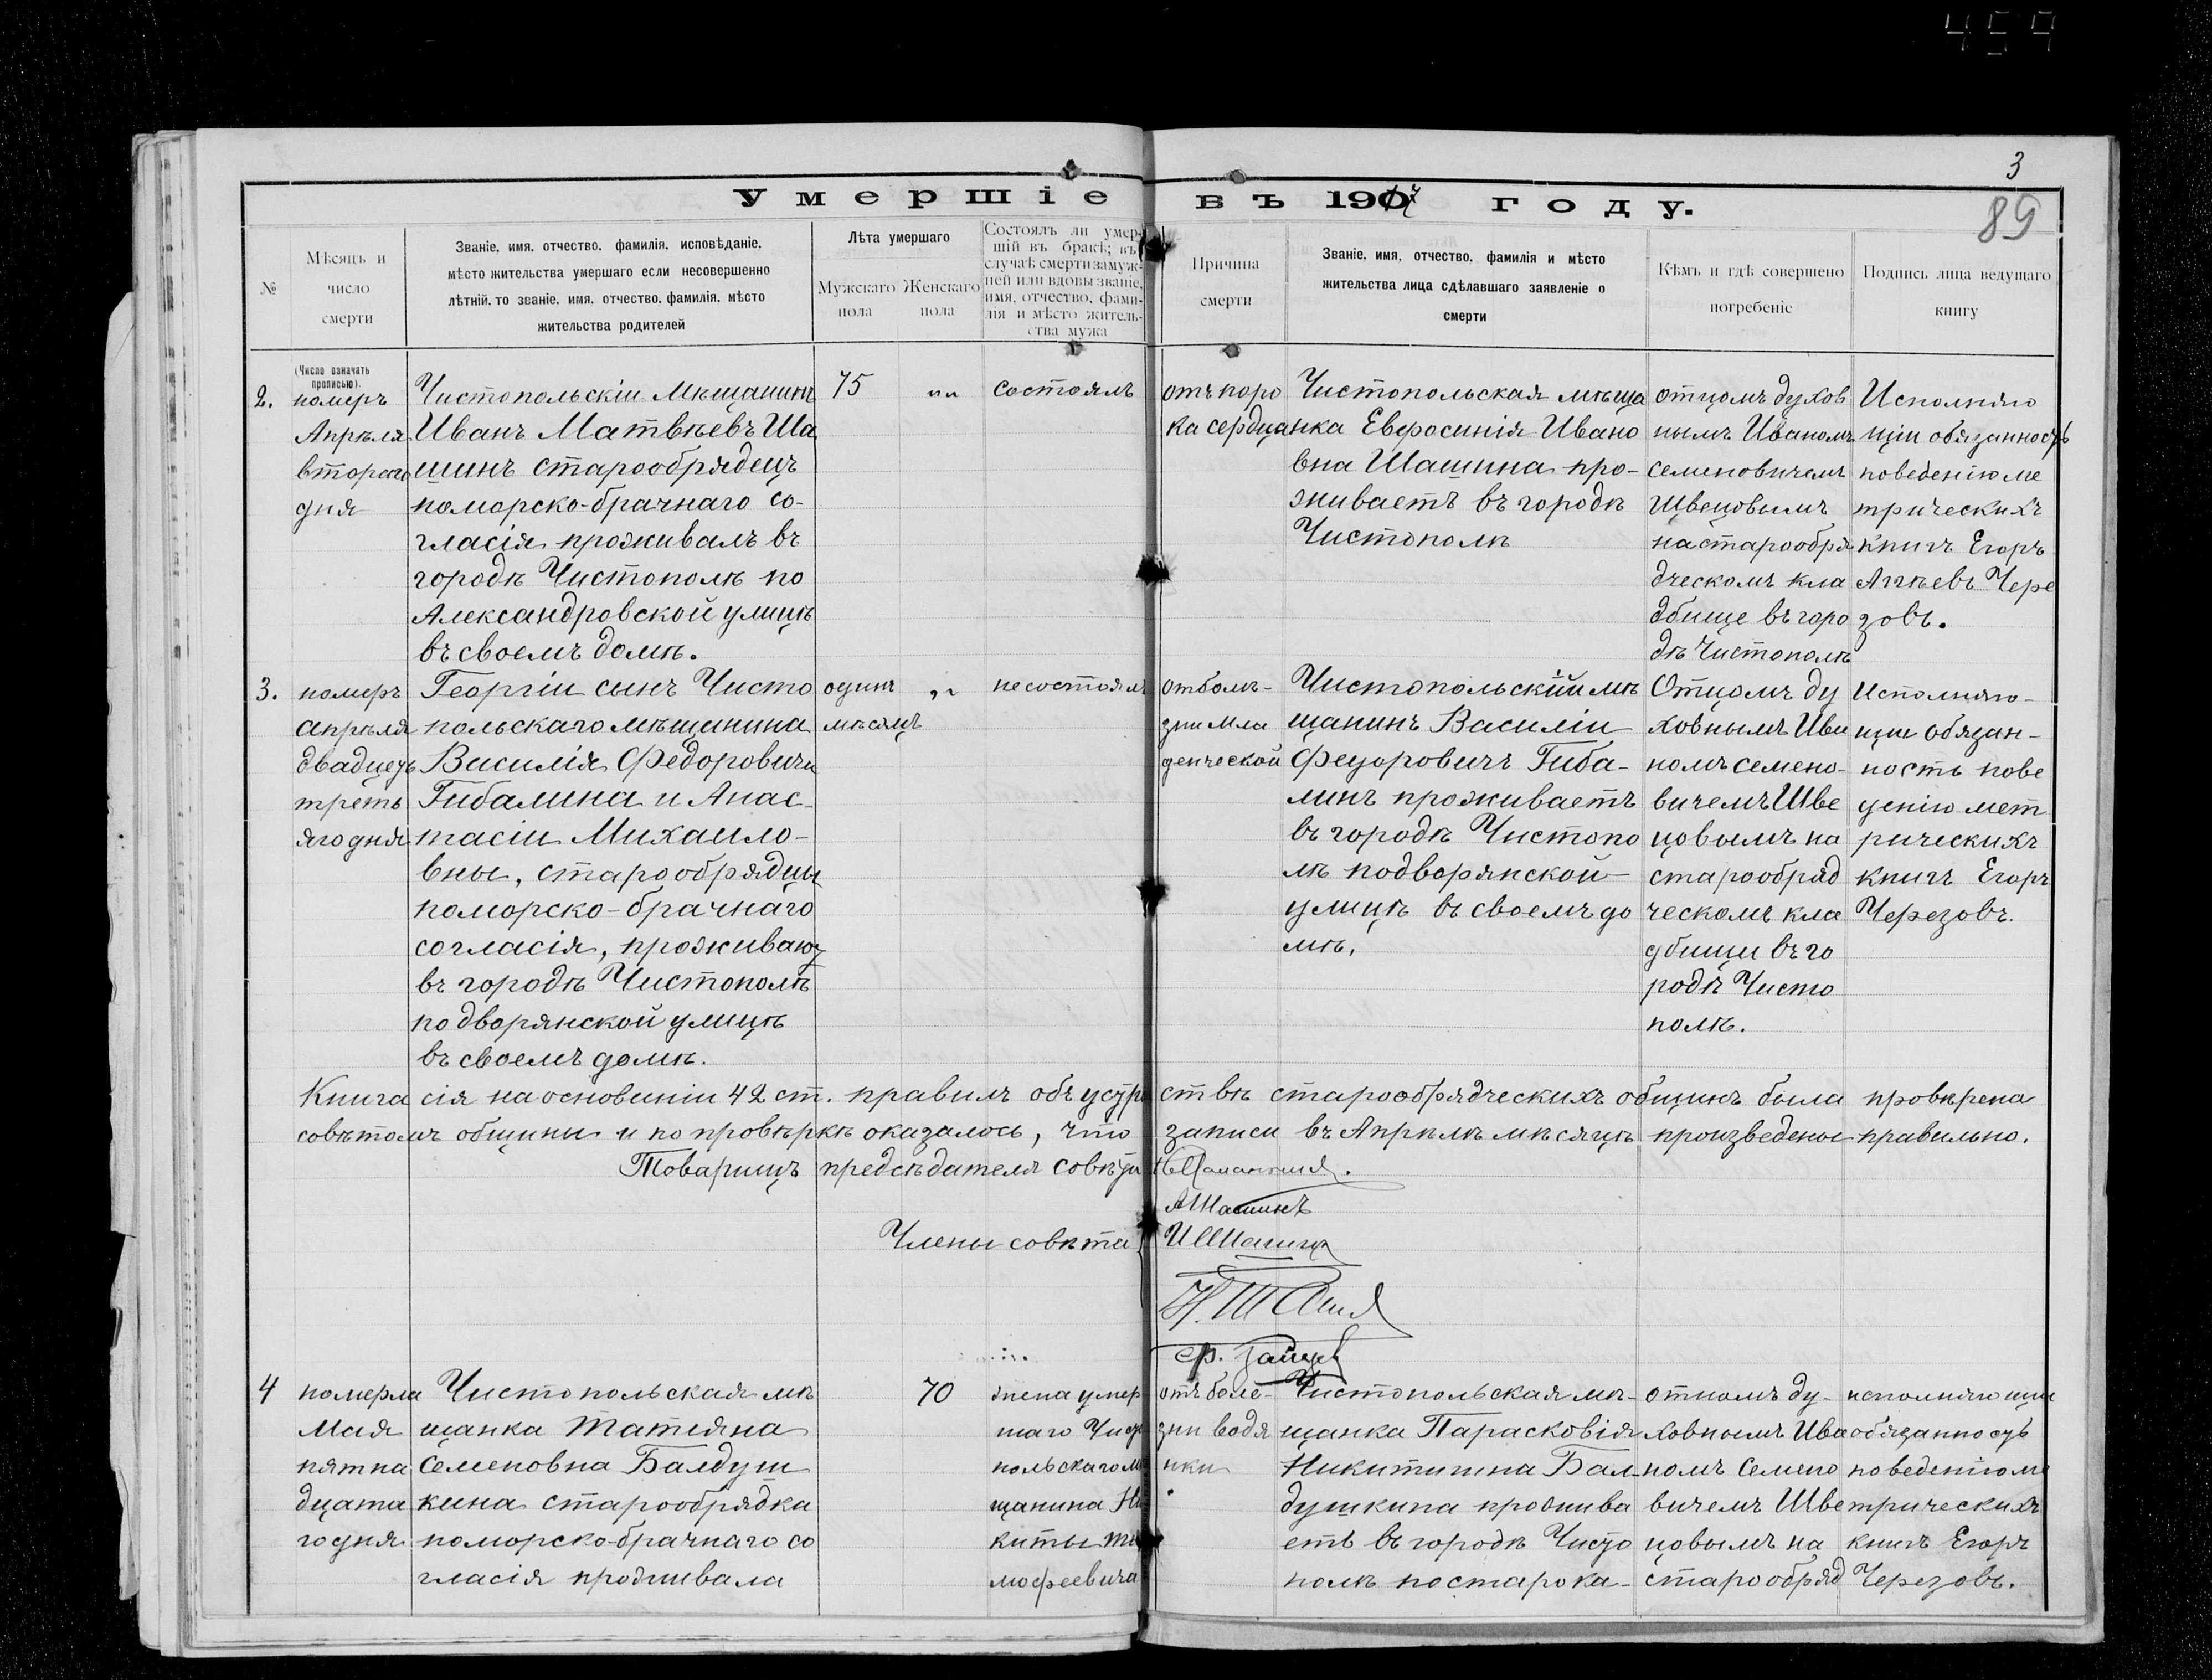 459
3
89
Умершіе въ 1907 году.
№
Мѣсяцъ и
число
смерти
Званіе, имя, отчество, фамилія, исповѣданіе,
мѣсто жительства умершаго если несовершенно
лѣтній, то званіе, имя, отчество, фамилія, мѣсто
жительства родителей
Лѣта умершаго
Мужскаго
пола
Женскаго
пола
Состоялъ ли умер-
шій въ бракѣ; въ
случаѣ смерти замуж-
ней или вдовы званіе,
имя, отчество, фами-
лія и мѣсто житель-
ства мужа
Причина
смерти
Званіе, имя, отчество, фамилія и мѣсто
жительства лица сдѣлавшаго заявленіе о
смерти
Кѣмъ и гдѣ совершено
погребеніе
Подпись лица ведущаго
книгу
(Число означать
прописью).
2.
померъ
Апрѣля
второго
дня
Чистопольскіи Мѣщанинъ
Иванъ Матвѣевъ Ша
шинъ старообрядецъ
поморско-брачнаго со-
гласія проживалъ въ
городѣ Чистополѣ по
Александровской улицѣ
въ своемъ домѣ.
75
"
состоялъ
отъ поро
ка сердца
Чистопольская мѣща
нка Евфросинія Ивано
вна Шашина про-
живаетъ въ городѣ
Чистополѣ
отцомъ духов
нымъ Иваномъ
Семеновичемъ
Швецовымъ
на старообря
дческомъ кла
дбище въ горо
дѣ Чистополѣ
Исполняю
щіи обязанность
по веденію ме
трическихъ
книгъ Егоръ
Аггѣевъ Чере
зовъ.
3.
померъ
Апрѣля
двадцеть
треть
яго дня
Георгіи сынъ Чисто
польскаго мѣщинина
Василія Федоровича
Гибалина и Анас-
тасіи Михаило-
вны, старообрядцы
поморско-брачнаго
согласія, проживают
въ городѣ Чистополѣ
по дворянской улицѣ
въ своемъ домѣ.
одинъ
мѣсяцъ
"
не состоялъ
от болѣ-
зни Мла
денческой
Чистопольскій мѣ
щанинъ Василіи
Федоровичъ Гиба-
линъ проживаетъ
въ городѣ Чистопо
лѣ по дворянской
улицѣ въ своемъ до
мѣ.
Отцомъ ду
ховнымъ Ива
номъ Семено-
вичемъ Шве
цовымъ на
старообряд
ческомъ кла
дбищи въ го
родѣ Чисто
полѣ.
Исполняю-
щи обязан-
ность по ве
денію мет
рическихъ
книгъ Егоръ
Черезовъ.
Книга сія на основаніи 42 ст. правилъ объ устройствѣ старообрядческихъ общинъ была провѣрена
совѣтомъ общины и по провѣркѣ оказалось, что записи въ Апрѣлѣ мѣсяцѣ произведены правильно.
Товарищъ предсѣдателя совѣта
АШашинъ
Члены совѣта
4
померла
Мая
пятна
дцата
го дня
Чистопольская мѣ
щанка Татіяна
Семеновна Балдуш
кина старообрядка
поморско-брачнаго со
гласія проживала
70
жена умер
шаго Чист
польскаго мѣ
щанина Ни
киты Ти
мофеевича
отъ боле-
зни водя
нки
Чистопольская мѣ-
щанка Парасковія
Никитишна Бал
душкина прожива
етъ въ городѣ Чисто
полѣ по старока-
отцомъ ду-
ховнымъ Ива
номъ Семено
вичемъ Шве
цовымъ на
старообряд
исполняющи
обязанность
по веденію ме
трическихъ
книгъ Егоръ
Черезовъ.